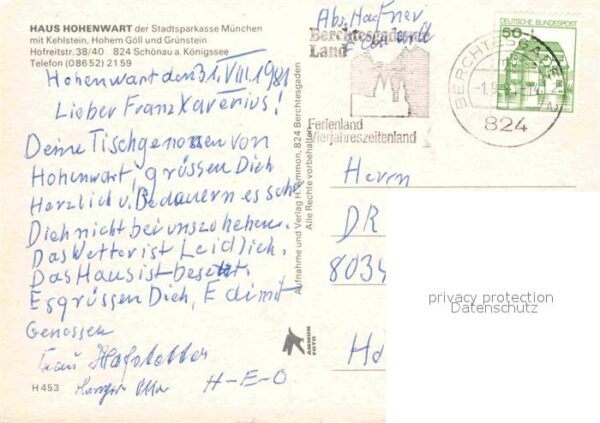 HAUS HOHENWART der Stadtsparkasse München
mit Kehlstein, Hohem Göll und Grünstein
Hofreitstr. 38/40 824 Schönau a. Königssee
Telefon (08652) 2159
Hohenwart den 31.VIII.1981
Lieber Franz Xaverius!
Deine Tischgenossen von
Hohenwart, grüssen Dich
Herzlich u. Bedauern es sehr
Dich nicht bei uns zu haben.
Das Wetter ist Leidlich.
Das Haus ist besetzt.
Es grüssen Dich, Edi mit
Genossen
Frau Hofstetter
H-E-O
H 453
Aufnahme und Verlag H. Ammon, 824 Berchtesgaden
Alle Rechte vorbehalten
AMMON
FOTO
Abs. Hafner
Berchtesgadener
Land
Ferienland
Vierjahreszeitenland
BERCHTESGADEN
824
DEUTSCHE BUNDESPOST
50
Herrn
DR
8034
privacy protection
Datenschutz